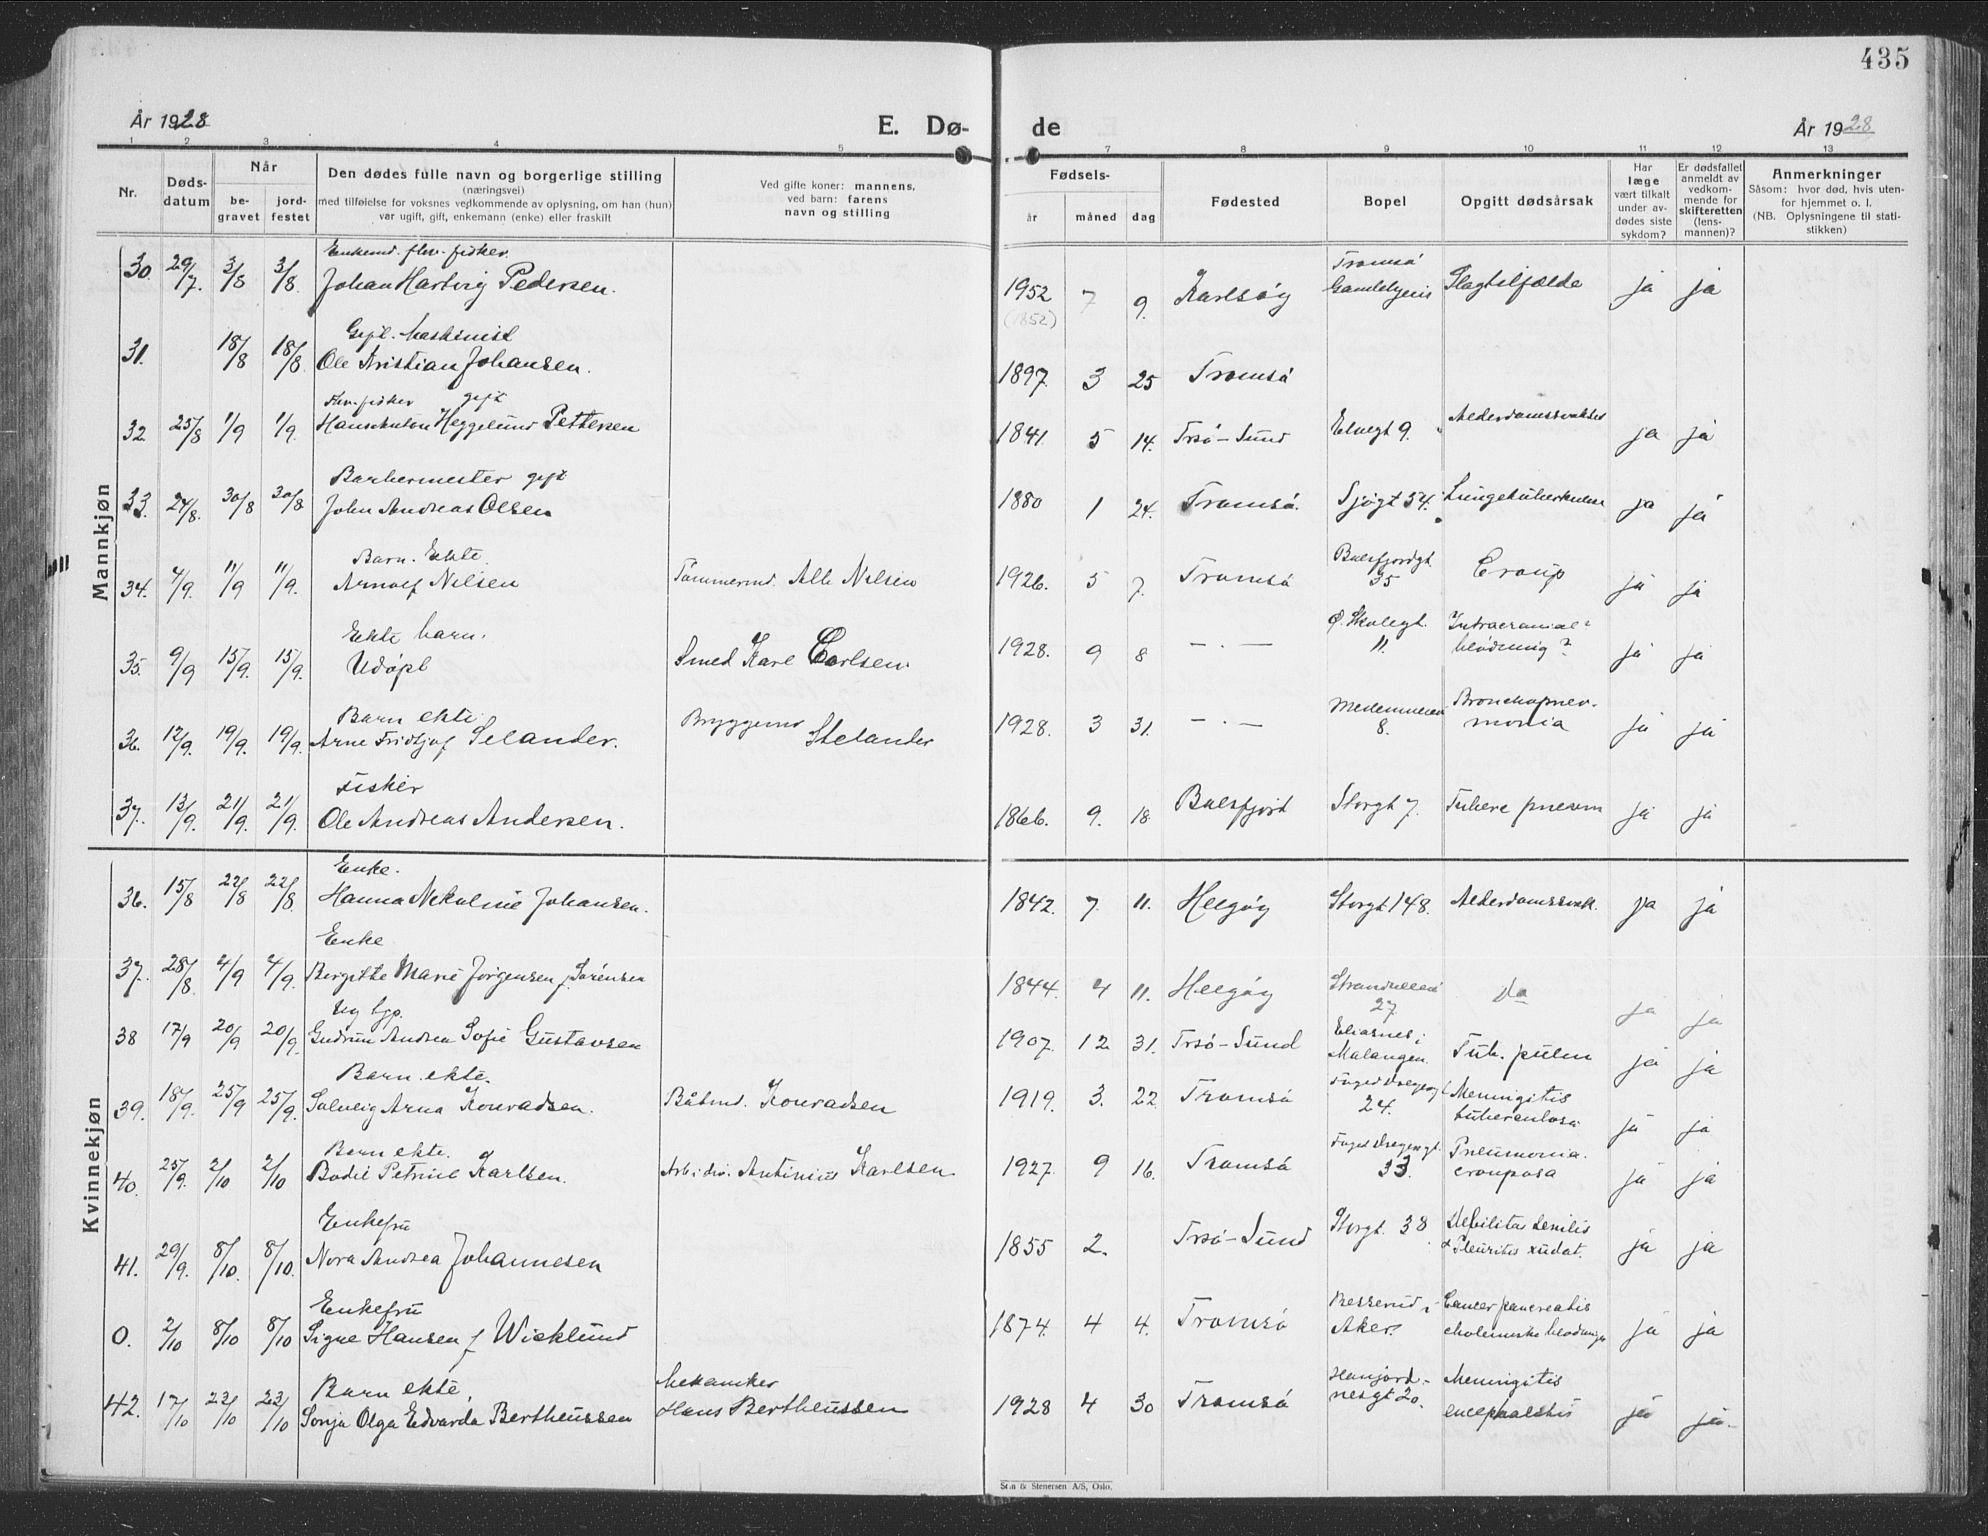 435
År 1928
E. Dø-
de
År 1928
1 2 3 4 5 7 8 9 10 11 12 13
Nr.
Døds-
datum
Når
be-
gravet
jord-
festet
Den dødes fulle navn og borgerlige stilling
(næringsvei)
med tilføielse for voksnes vedkommende av oplysning, om han (hun)
var ugift, gift, enkemann (enke) eller fraskilt
Ved gifte koner: mannens,
ved barn: farens
navn og stilling
Fødsels-
år måned dag
Fødested
Bopel
Opgitt dødsårsak
Har
læge
vært tilkalt
under av-
dødes siste
sykdom?
Er dødsfallet
anmeldt av
vedkom-
mende for
skifteretten
(lens-
mannen)?
Anmerkninger
Såsom: hvor død, hvis uten-
for hjemmet o. l.
(NB. Oplysningene til stati-
stikken)
Mannkjøn
Enkemd. fhv. fisker Tromsö
30. 29/7. 3/8 3/8. Johan Hartvig Pedersen. 1952 7 9. Karlsøy Gamlehjem Slagtilfælde ja ja
(1852)
Gift. Maskinist
31. 18/8 18/8. Ole Kristian Johansen. 1897. 3 25 Tromsö
Fhv. fisker gift
32 25/8 1/9 1/9. Hans Anton Heggelund Pettersen 1841 5 14. Trsö-Sund Elvegt 9. Alderdomssvakhet ja ja
Barbermester gift
33. 24/8. 30/8 30/8 John Andreas Olsen 1880 1 24. Tromsö. Sjøgt 34. Lungetuberkulose ja ja
Barn. Ekte. Balsfjordgt
34. 4/9. 11/9 11/9. Arnolf Nilsen Tømmermd. Alb Nilsen 1926. 5 7. Tromsö 35 Croup ja ja
Ekte barn. Ø. Skolegt. Intracranial-
35. 9/9 15/9. 15/9. Udöpt Smed Karl Carlsen. 1928. 9 8 — · — 11. blödning? ja ja
Barn ekte Bryggemd Bronchopnev-
36. 12/9. 19/9. 19/9. Arne Fridtjof Selander. Stelander 1928. 3 31. — · — 8. monia ja ja
Fisker
37. 13/9. 21/9. 21/9. Ole Andreas Andersen. 1866. 9. 18 Balsfjord Storgt 7. Tuberc pneum ja ja
Kvinnekjøn
Enke.
36. 15/8 22/8 22/8. Hanna Nikoline Johansen. 1842. 7. 11. Helgøy Storgt 148. Alderdomssvak. ja ja
Enke
37. 28/8. 4/9 4/9. Birgitte Marie Jørgensen f. Sørensen 1844. 4 11. Helgøy Strandveien 27 Do ja ja
Ug hjp. Eliasnes i
38 17/9 20/9 20/9. Gudrun Andrea Sofie Gustavsen 1907. 12. 31. Trsö-Sund Malangen. Tub. pulm ja ja
Barn ekte. Meningitis
39. 18/9. 25/9 25/9. Solveig Arna Konradsen. Båtmd. Konradsen 1919. 3. 22. Tromsö 24. tuberculosa ja ja
Barn ekte. Pneumonia
40. 25/9. 2/10 2/10 Bodil Petrine Karlsen. Antinius Karlsen 1927. 9 16. Tromsö 33. crouposa ja ja
Enkefru Debilitas senilis
41. 29/9. 8/10. 8/10. Nora Andrea Johannesen 1855 2. Trsö-Sund Storgt. 38 & Pleuritis xudat. ja ja
Enkefru Besserud i Cancer pancreatis
0. 2/10 8/10 8/10 Signe Hansen f Wicklund 1874. 4 4. Tromsö Aker. cholemiske blödninger ja ja
Barn ekte. Mekaniker Hansjord- Meningitis
42. 17/10 23/10 23/10 Sonja Olga Edvarda Bertheussen Hans Bertheussen 1928 4 30 Tromsö nesgt 20. encephalitis ja ja.
Sten & Stenersen A/S, Oslo.